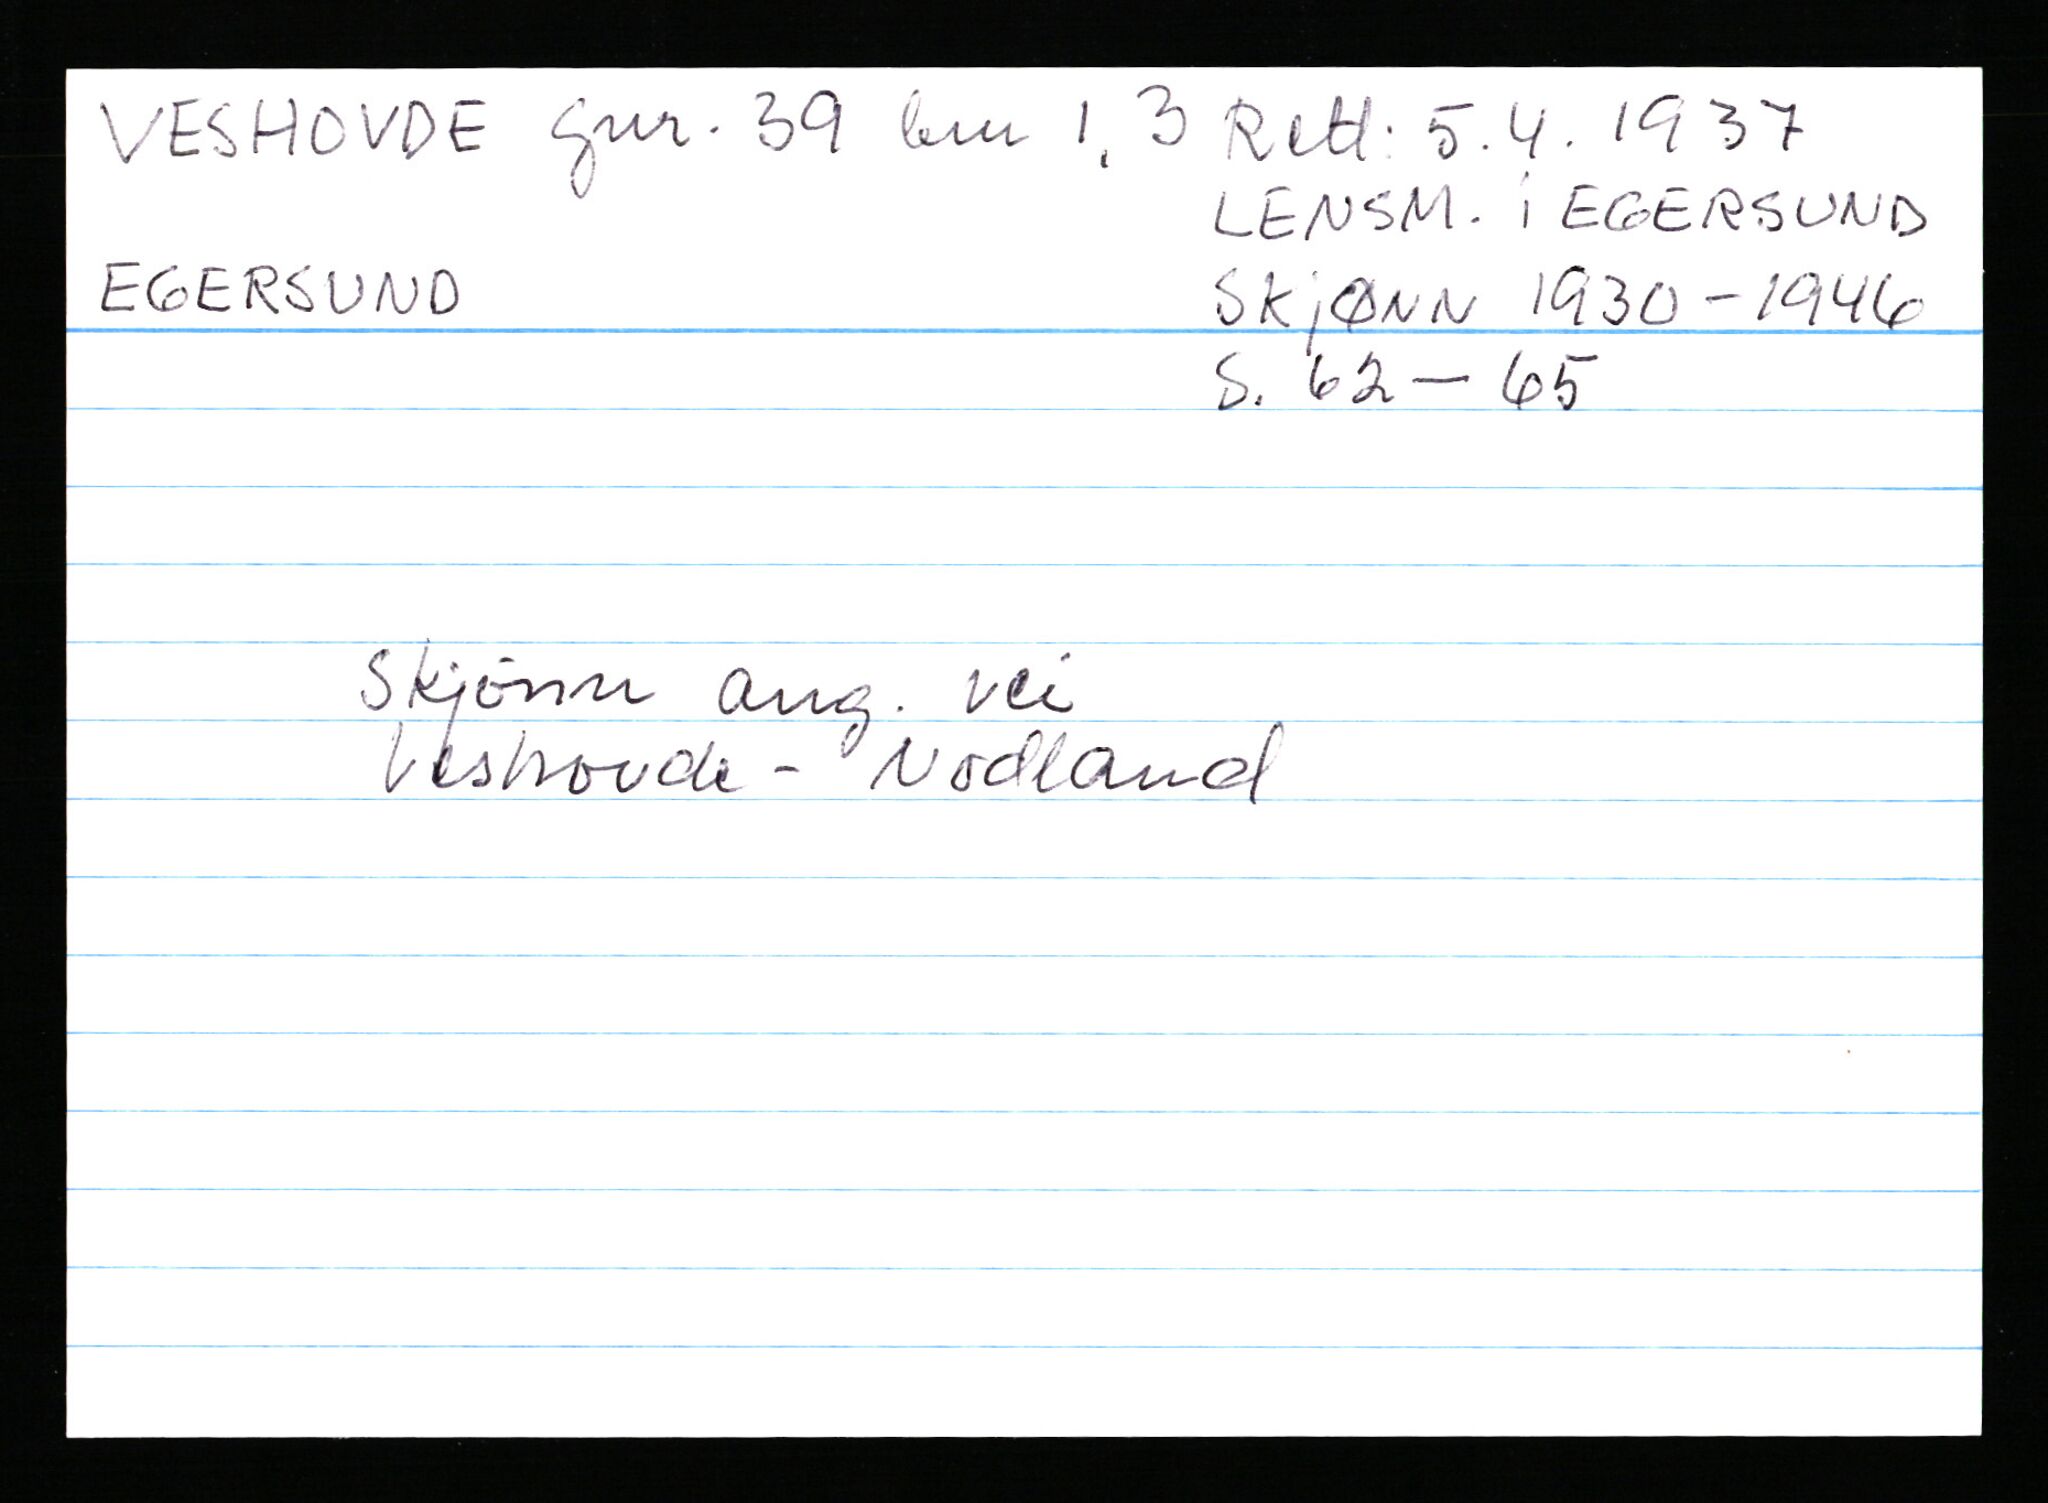 VESHOVDE gnr. 39 bnr 1, 3 Rett: 5.4.1937
LENSM. i EGERSUND
EGERSUND
SKjØNN 1930-1946
S. 62 - 65
Skjönn ang. vei
Veshovde - Nodland